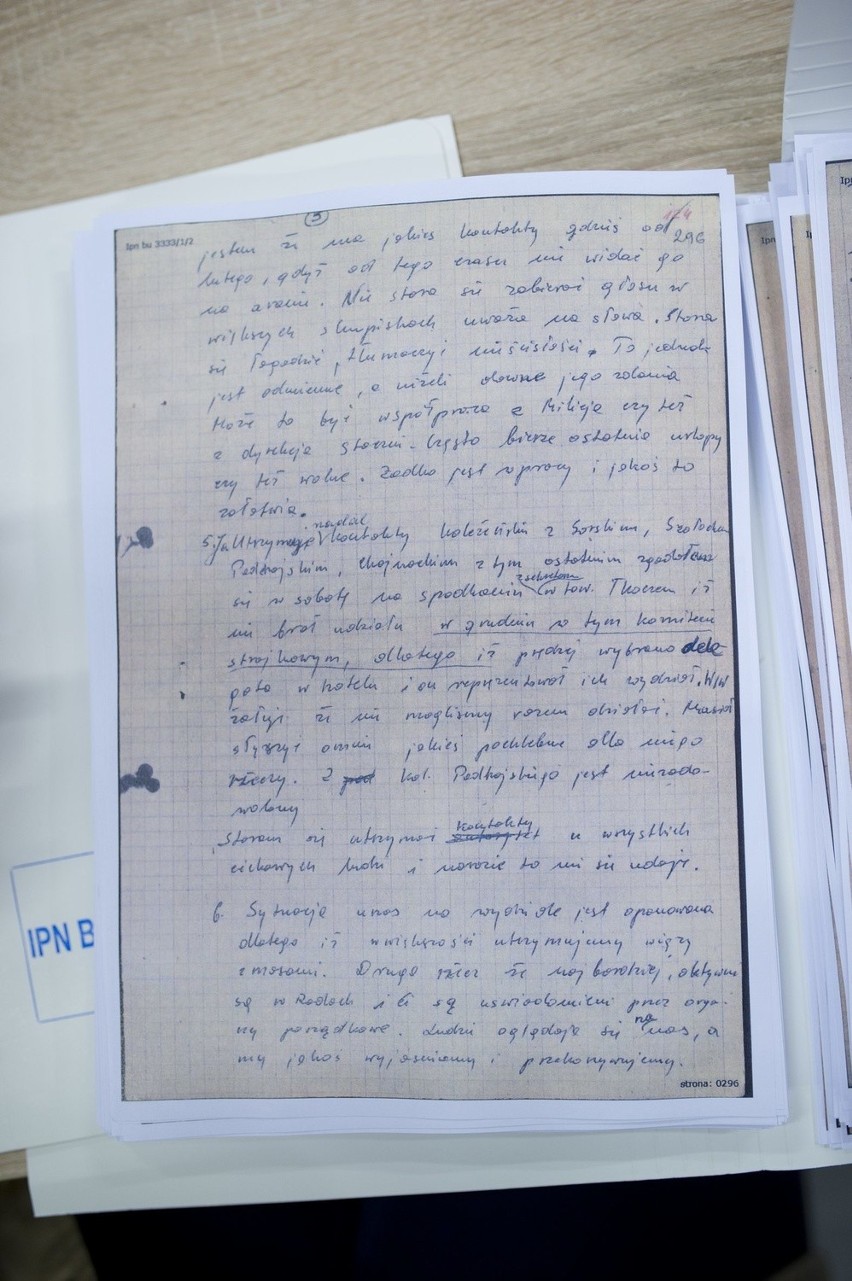 Ipn bu 3333/1/2
3
174
296
jestem że ma jakieś kontakty gdzieś od
lutego, gdyż od tego czasu nie widać go
na arenie. Nie stara się zabierać głosu w
większych skupiskach uważa na słowa. Stara
się łagodzić, tłumaczyć nieścisłości. To jednak
jest odmienne, a niżeli dawne jego zdania
Może to być współpraca z Milicją czy też
z dyrekcją stoczni. Często bierze ostatnio urlopy
czy też wolne. Żadko jest w pracy i jakoś to
załatwia.
5. Ja utrzymuję nadal kontakty koleżeńskie z Górskim, Szołochem
Podhajskim, Chojnackim z tym ostatnim zgadałem
się w sobotę na spotkaniu z sekretarzem tow. Tkaczem iż
nie brał udziału w grudniu w tym komitecie
strajkowym, dlatego iż prędzej wybrano dele
gata w hotelu i on reprezentował ich wydział. W/w
żałuje że nie mogliśmy razem działać. Musiał
słyszyć omnie jakieś pochlebne dla niego
rzeczy. Z kol. Podhajskiego jest niezado-
wolony
Staram się utrzymać kontakty u wszystkich
ciekawych ludzi i narazie to mi się udaje.
6. Sytuacja unas na wydziale jest opanowana
dlatego iż wwiększości utrzymujemy więzy
zmasami. Druga rzecz że najbardziej aktywni
są w Radach i ci są uświadomieni przez orga-
ny porządkowe. Ludzie oglądają się na nas, a
my jakoś wyjaśniamy i przekonywujemy.
strona: 0296
IPN B